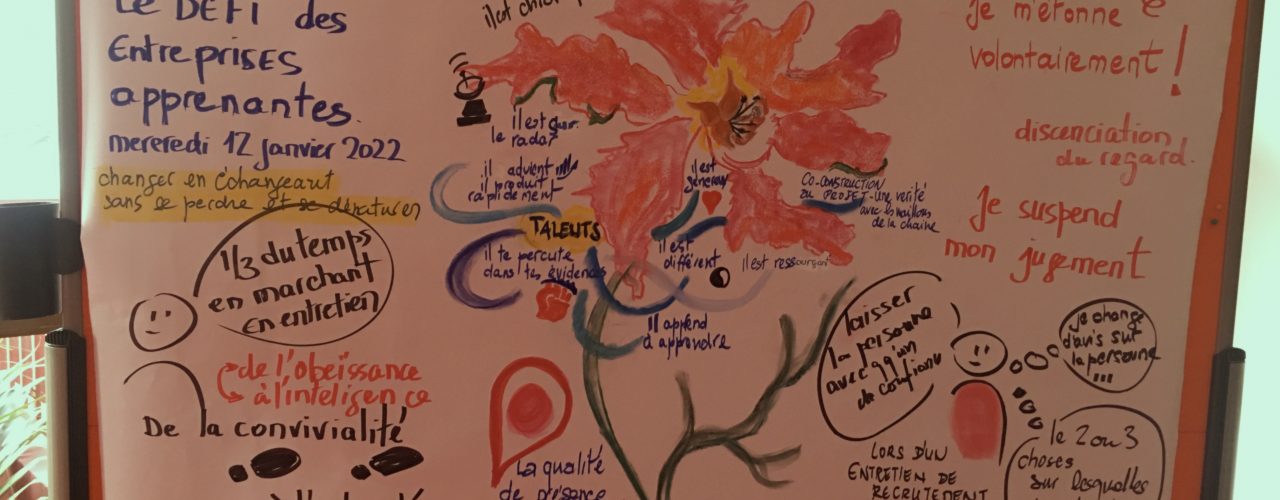 Le DÉFI des
Entreprises
apprenantes.
mercredi 12 janvier 2022
changer en échangeant
sans se perdre et se dénaturer
1/3 du temps
en marchant
en entretien
de l'obeïssance
à l'inteligence
De la convivialité
il est
le radar
il advient
il produit
rapidement
TALENTS
il te percute
dans tes évidences
il est
généreux
il est
différent
il est ressourçant
Il apprend
à apprendre
CO-CONSTRUCTION
DU PROJET - Une verité
avec les maillons
de la chaine
La qualité
de présence
je m'étonne
volontairement !
discenciation
du regard.
Je suspend
mon jugement
laisser
la personne
avec un
de confiance
je change
d'avis sur
la personne
...
LORS D'UN
ENTRETIEN DE
RECRUTEMENT
le 2 ou 3
choses
sur lesquelles